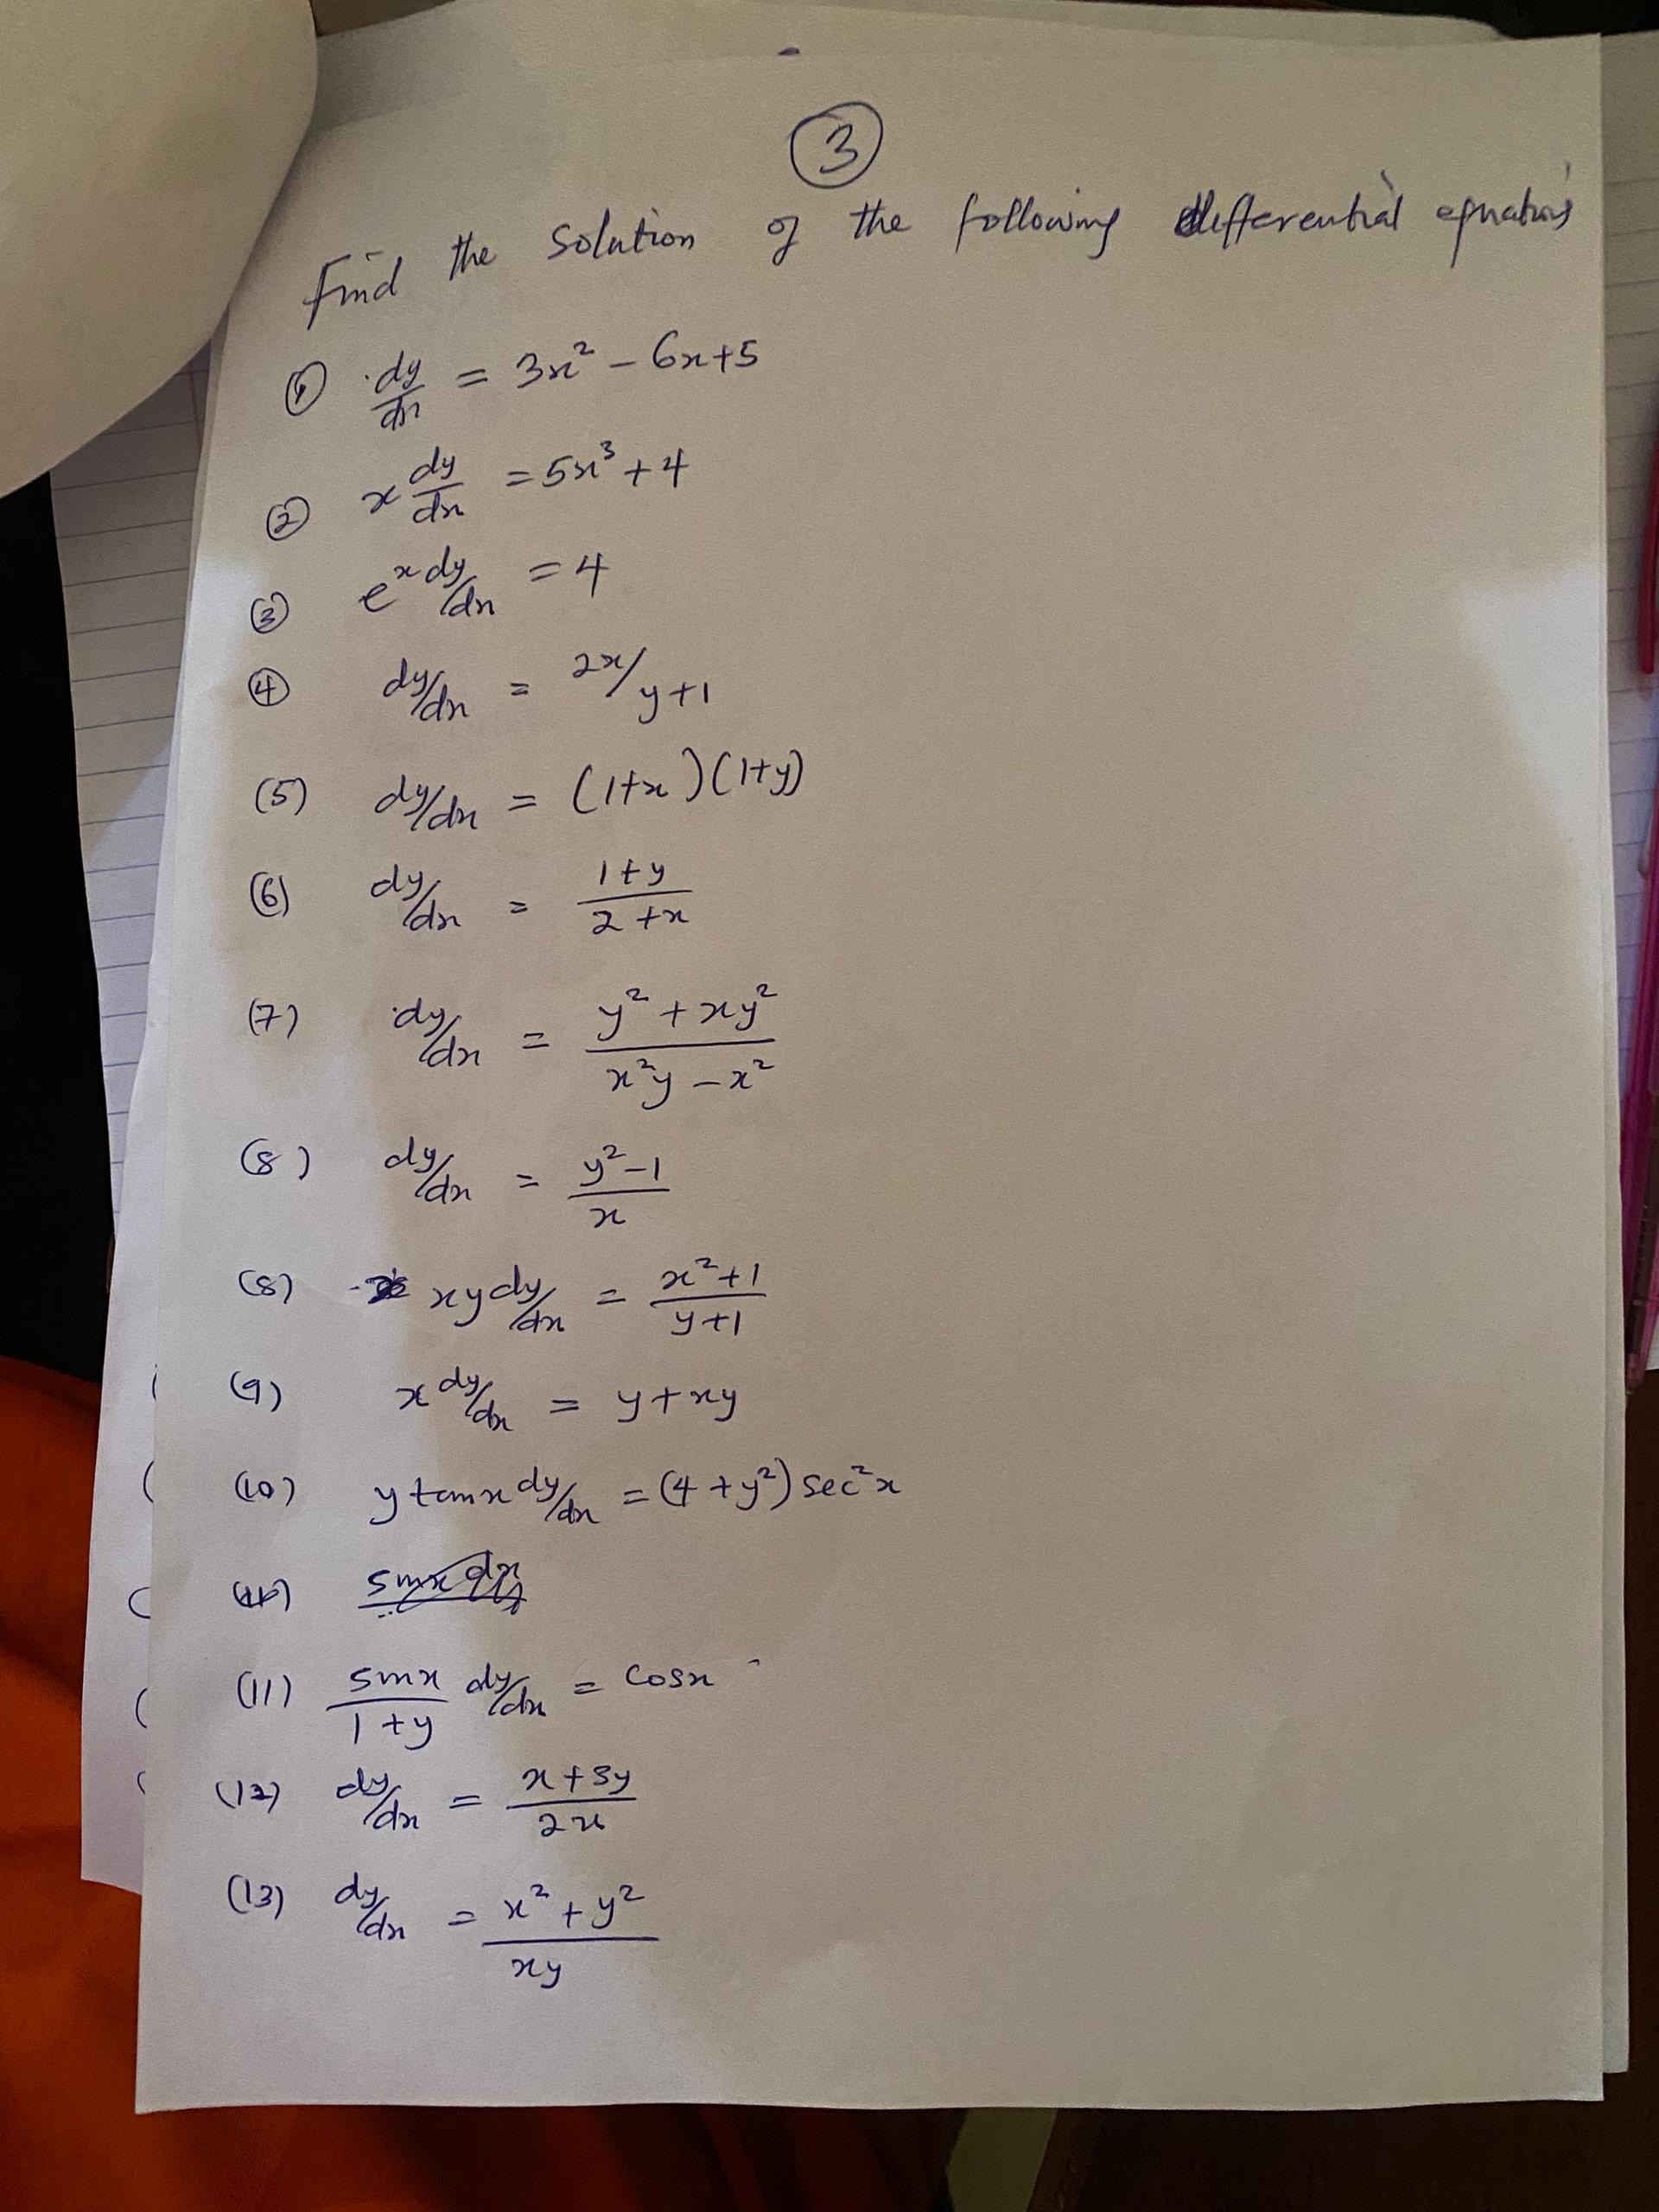 ③
Find the solution of the following differential equations
① dy/dx = 3x² - 6x+5
② x dy/dx = 5x³ + 4
③ eˣ dy/dx = 4
④ dy/dx = 2x/y+1
(5) dy/dx = (1+x)(1+y)
(6) dy/dx = 1+y/2+x
(7) dy/dx = y² + xy²/x²y - x²
(8) dy/dx = y²-1/x
(8) xy dy/dx = x²+1/y+1
(9) x dy/dx = y+xy
(10) y tanx dy/dx = (4+y²) sec²x
(11) sinx/1+y dy/dx = cosx
(12) dy/dx = x+3y/2x
(13) dy/dx = x² + y²/xy